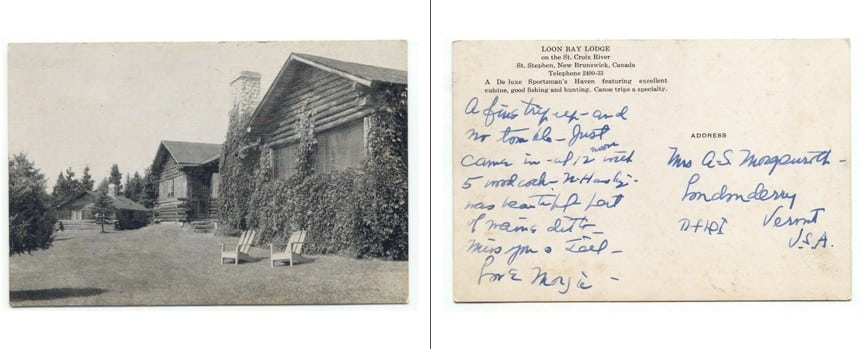 LOON BAY LODGE
on the St. Croix River
St. Stephen, New Brunswick, Canada
Telephone 2400-33
A De luxe Sportsman's Haven featuring excellent
cuisine, good fishing and hunting. Canoe trips a specialty.
A fine trip up - and
no trouble - Just
came in - at 12 noon with
5 woodcock - N. Hamp -
was beautiful part
of Maine ditto -
Miss you
Love Morgie -
ADDRESS
Mrs A.S. Morgenroth -
Londonderry
Vermt
U.S.A.